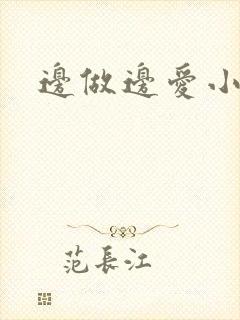 邊做邊愛小
范長江